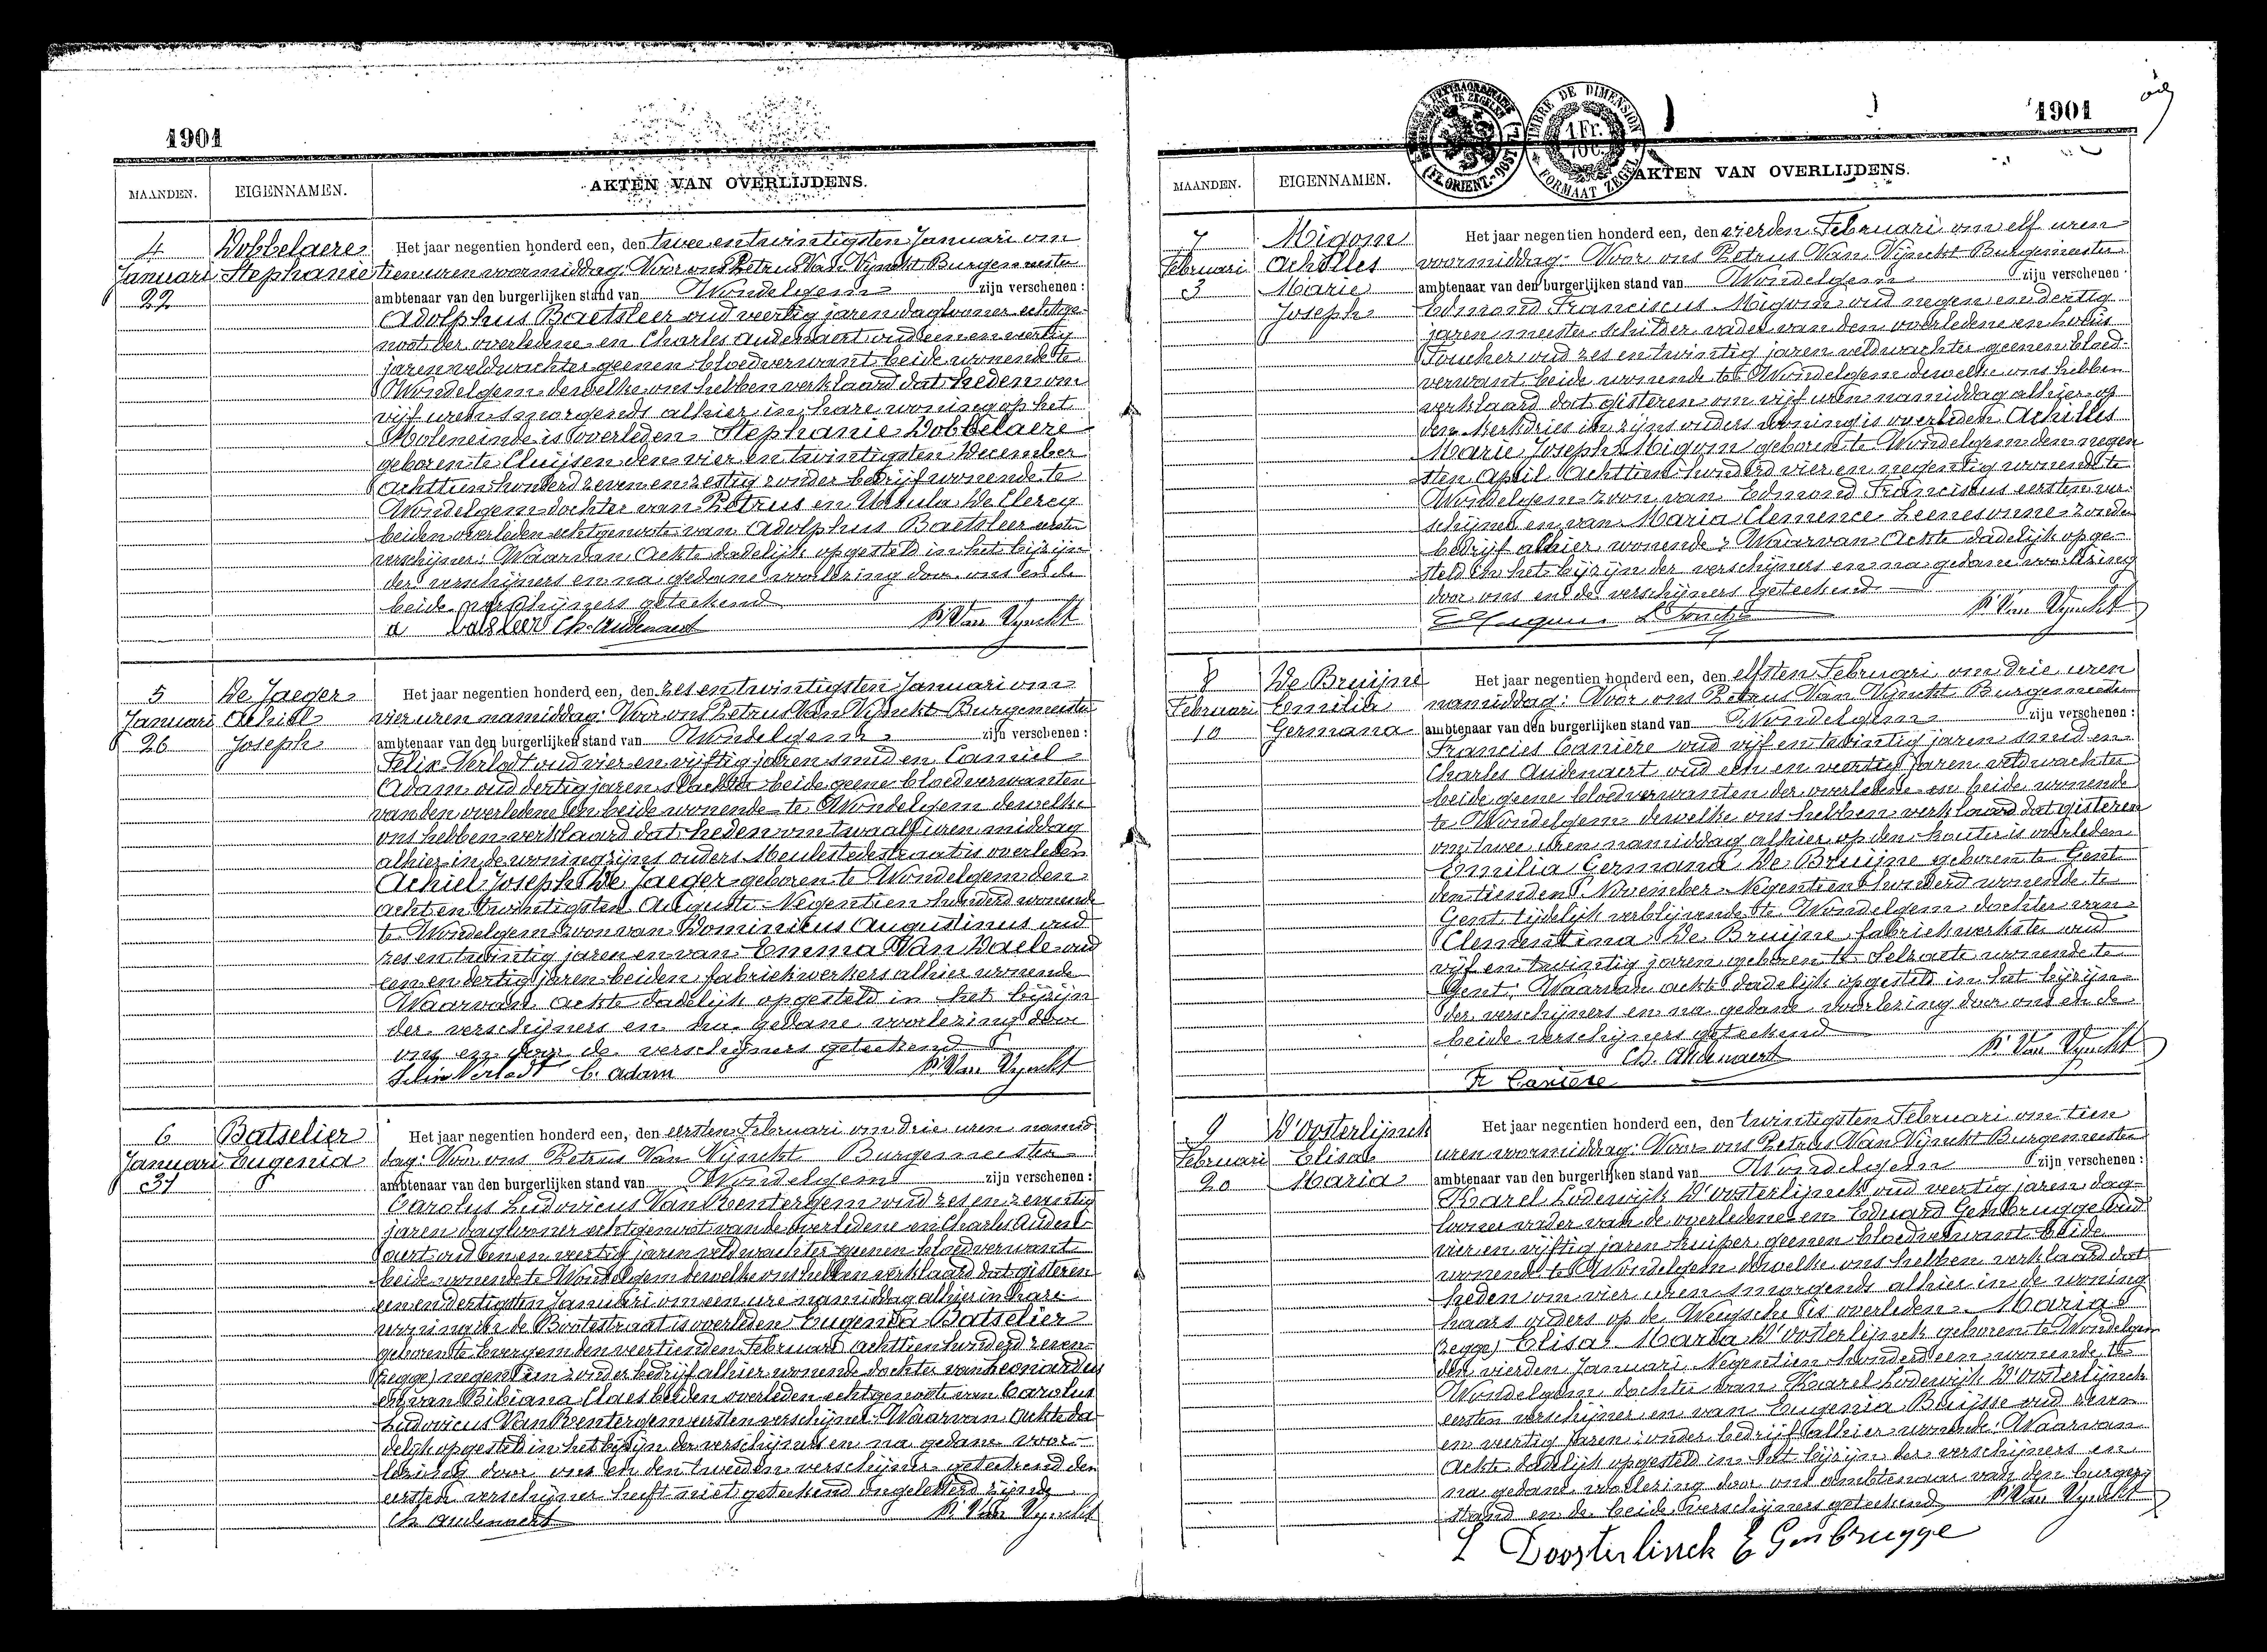 1901
MAANDEN. EIGENNAMEN. AKTEN VAN OVERLIJDENS.
4 Dobbelaere Het jaar negentien honderd een, den twee en twintigsten Januari om
Januari Stephanie tien uren voormiddag: Voor ons Petrus Van Vynckt Burgemeester
22 ambtenaar van den burgerlijken stand van Wondelgem zijn verschenen:
Adolphus Baetsleer oud veertig jaren daglooner echtge-
noot der overledene en Charles Audenaert oud een en veertig
jaren veldwachter geenen bloedverwant beide wonende te
Wondelgem dewelke ons hebben verklaard dat heden om
vijf uren smorgends alhier in hare woning op het
Moleneinde is overleden Stephanie Dobbelaere
geboren te Cluijsen den vier en twintigsten December
achttien honderd zeven en zestig zonder bedrijf wonende te
Wondelgem dochter van Petrus en Ursula De Clercq
beiden overleden echtgenoote van Adolphus Baetsleer eersten
verschijner: Waarvan Achte dadelijk opgesteld in het bijzijn
der verschijners en na gedane voorlezing door ons en de
beide verschijners geteekend
a batsleer Ch. Audenaert P. Van Vynckt
5 De Jaeger Het jaar negentien honderd een, den zes en twintigsten Januari om
Januari Achiel vier uren namiddag: Voor ons Petrus Van Vynckt Burgemeester
26 Joseph ambtenaar van den burgerlijken stand van Wondelgem zijn verschenen:
Felix Verlodt oud vier en vijftig jaren smid en Camiel
Adam oud dertig jaren slachter beide geene bloedverwanten
van den overledene en beide wonende te Wondelgem dewelke
ons hebben verklaard dat heden om twaalf uren middag
alhier in de woning zijns ouders Meulestedestraat is overleden
Achiel Joseph De Jaeger geboren te Wondelgem den
acht en twintigsten Auguste Negentien honderd wonende
te Wondelgem zoon van Dominicus Augustinus oud
zes en twintig jaren en van Emma Van Daele oud
een en dertig jaren beiden fabriekwerkers alhier wonende
Waarvan Achte dadelijk opgesteld in het bijzijn
der verschijners en na gedane voorlezing door
ons en door de verschijners geteekend
Felix Verlodt C. Adam P. Van Vynckt
6 Batselier Het jaar negentien honderd een, den eersten Februari om drie uren namid
Januari Eugenia dag: Voor ons Petrus Van Vynckt Burgemeester
31 ambtenaar van den burgerlijken stand van Wondelgem zijn verschenen:
Carolus Ludovicus Van Wentergem oud zes en zeventig
jaren daglooner echtgenoot van de overledene en Charles Auden-
aert oud een en veertig jaren veldwachter geenen bloedverwant
beide wonende te Wondelgem dewelke ons hebben verklaard dat gisteren
een en dertigsten Januari om een ure namiddag alhier in hare
woning in de Bootestraat is overleden Eugenia Batselier
geboren te Evergem den veertienden Februari achttien honderd zeven-
(zegge) negentien zonder bedrijf alhier wonende dochter van Leonardus
en van Bibiana Claes beiden overleden echtgenoote van Carolus
Ludovicus Van Wentergem eersten verschijner: Waarvan Achte da-
delijk opgesteld in het bijzijn der verschijners en na gedane voor-
lezing door ons en den tweeden verschijner geteekend den
eersten verschijner heeft niet geteekend ongeletterd zijnde
Ch Audenaert P. Van Vynckt
1901
MAANDEN. EIGENNAMEN. AKTEN VAN OVERLIJDENS.
TIMBRE DE DIMENSION
1 Fr.
FORMAAT ZEGEL
7 Migom Het jaar negentien honderd een, den vierden Februari om elf uren
Februari Achilles voormiddag: Voor ons Petrus Van Vynckt Burgemeester
3 Marie ambtenaar van den burgerlijken stand van Wondelgem zijn verschenen:
Joseph Edmond Franciscus Migom oud negen en dertig
jaren meester schilder vader van den overledene en Louis
Foucher oud zes en twintig jaren veldwachter geenen bloed-
verwant beide wonende te Wondelgem dewelke ons hebben
verklaard dat gisteren om vijf uren namiddag alhier op
den Kerkdries in zijns ouders woning is overleden Achilles
Marie Joseph Migom geboren te Wondelgem den negen
sten April Achttien honderd vier en negentig wonende te
Wondelgem zoon van Edmond Franciscus eersten ver-
schijner en van Maria Clemence Leenesonne zonder
bedrijf alhier wonende: Waarvan Achte dadelijk opge-
steld in het bijzijn der verschijners en na gedane voorlezing
door ons en de verschijners geteekend
E Migom P. Van Vynckt
8 De Bruijne Het jaar negentien honderd een, den elfsten Februari om drie uren
Februari Emilia namiddag: Voor ons Petrus Van Vynckt Burgemeester
10 Germana ambtenaar van den burgerlijken stand van Wondelgem zijn verschenen:
Francies Canière oud vijf en twintig jaren smid en
Charles Audenaert oud een en veertig jaren veldwachter
beide geene bloedverwanten der overledene en beide wonende
te Wondelgem dewelke ons hebben verklaard dat gisteren
om twee uren namiddag alhier op den kouter is overleden
Emilia Germana De Bruijne geboren te Gent
den tienden November Negentien honderd wonende te
Gent tijdelijk verblijvende te Wondelgem dochter van
Clementina De Bruijne fabriekwerkster oud
vijf en twintig jaren geboren te Selzaete wonende te
Gent: Waarvan achte dadelijk opgesteld in het bijzijn
der verschijners en na gedane voorlezing door ons en de
beide verschijners geteekend
Ch. Audenaert P. Van Vynckt
Fr Canière
9 D'Oosterlijnck Het jaar negentien honderd een, den twintigsten Februari om tien
Februari Elisa uren voormiddag: Voor ons Petrus Van Vynckt Burgemeester
20 Maria ambtenaar van den burgerlijken stand van Wondelgem zijn verschenen:
Karel Lodewijk D'oosterlijnck oud veertig jaren dag-
looner vader van de overledene en Eduard Genbrugge oud
vier en vijftig jaren kuiper geenen bloedverwant beide
wonende te Wondelgem dewelke ons hebben verklaard dat
heden om vier uren smorgends alhier in de woning
haars ouders op de is overleden Maria
(zegge) Elisa Maria D'oosterlijnck geboren te Wondelgem
den vierden Januari Negentien honderd een wonende te
Wondelgem dochter van Karel Lodewijk D'oosterlijnck
eersten verschijner en van Eugenia Buijsse oud zeven
en veertig jaren zonder bedrijf alhier wonende: Waarvan
Achte dadelijk opgesteld in het bijzijn der verschijners en
na gedane voorlezing door ons ambtenaar van den burgerl
stand en de beide verschijners geteekend P. Van Vynckt
L Doosterlinck E Genbrugge